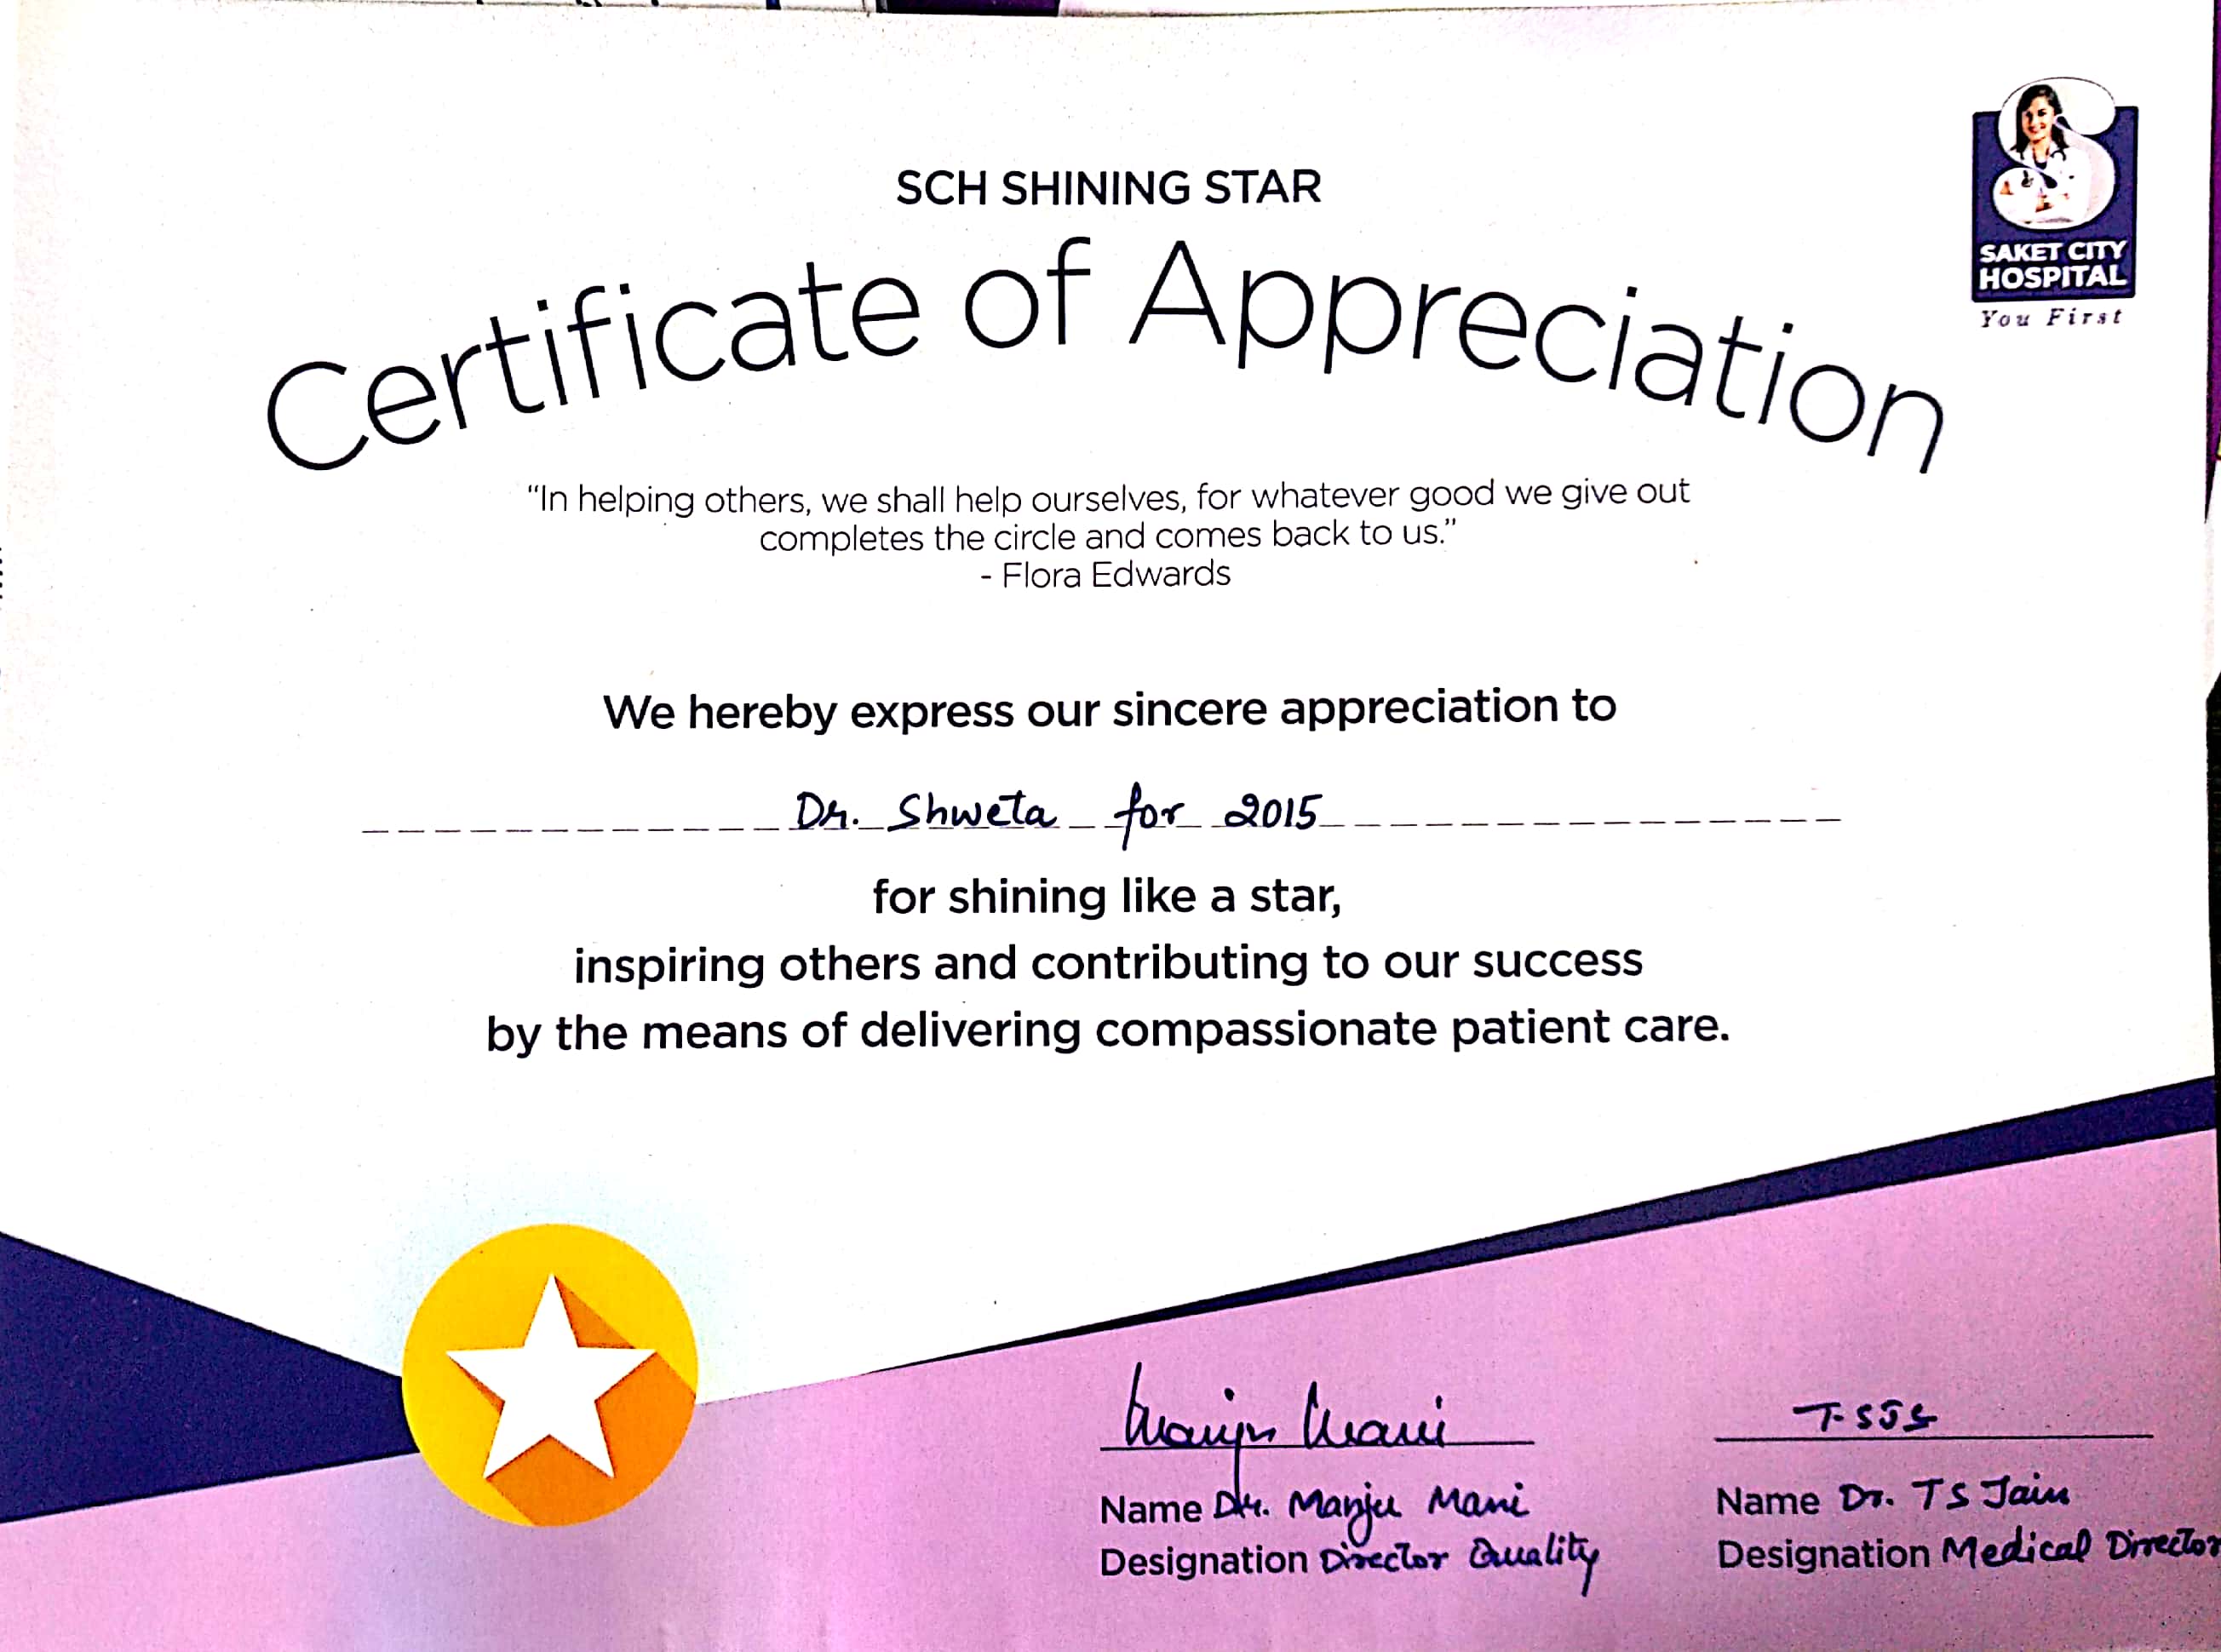 SCH SHINING STAR
Certificate of Appreciation
SAKET CITY
HOSPITAL
You First
“In helping others, we shall help ourselves, for whatever good we give out
completes the circle and comes back to us.”
- Flora Edwards
We hereby express our sincere appreciation to
Dr. Shweta for 2015
for shining like a star,
inspiring others and contributing to our success
by the means of delivering compassionate patient care.
Manju Mani
Name Dr. Manju Mani
Designation Director Quality
Name Dr. TS Jain
Designation Medical Director